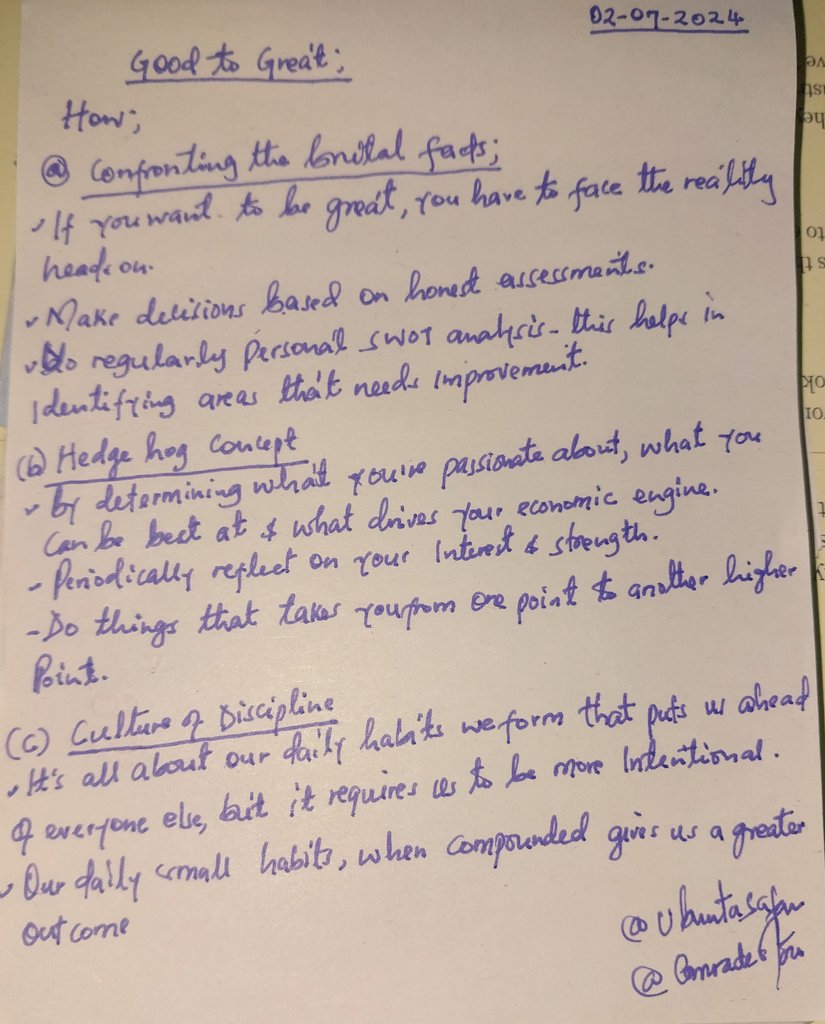 02-07-2024
Good to Great;
How;
@ Confronting the brutal facts;
✓ If you want to be great, you have to face the reality
heads on.
✓ Make decisions based on honest assessments.
✓ Do regularly personal SWOT analysis - this helps in
Identifying areas that needs improvement.
(b) Hedge hog Concept
✓ by determining what you're passionate about, what you
Can be best at & what drives your economic engine.
- Periodically reflect on your Interest & strength.
- Do things that takes you from one point to another higher
Point.
(c) Culture of Discipline
✓ It's all about our daily habits we form that puts us ahead
of everyone else, but it requires us to be more Intentional.
✓ Our daily small habits, when compounded gives us a greater
outcome